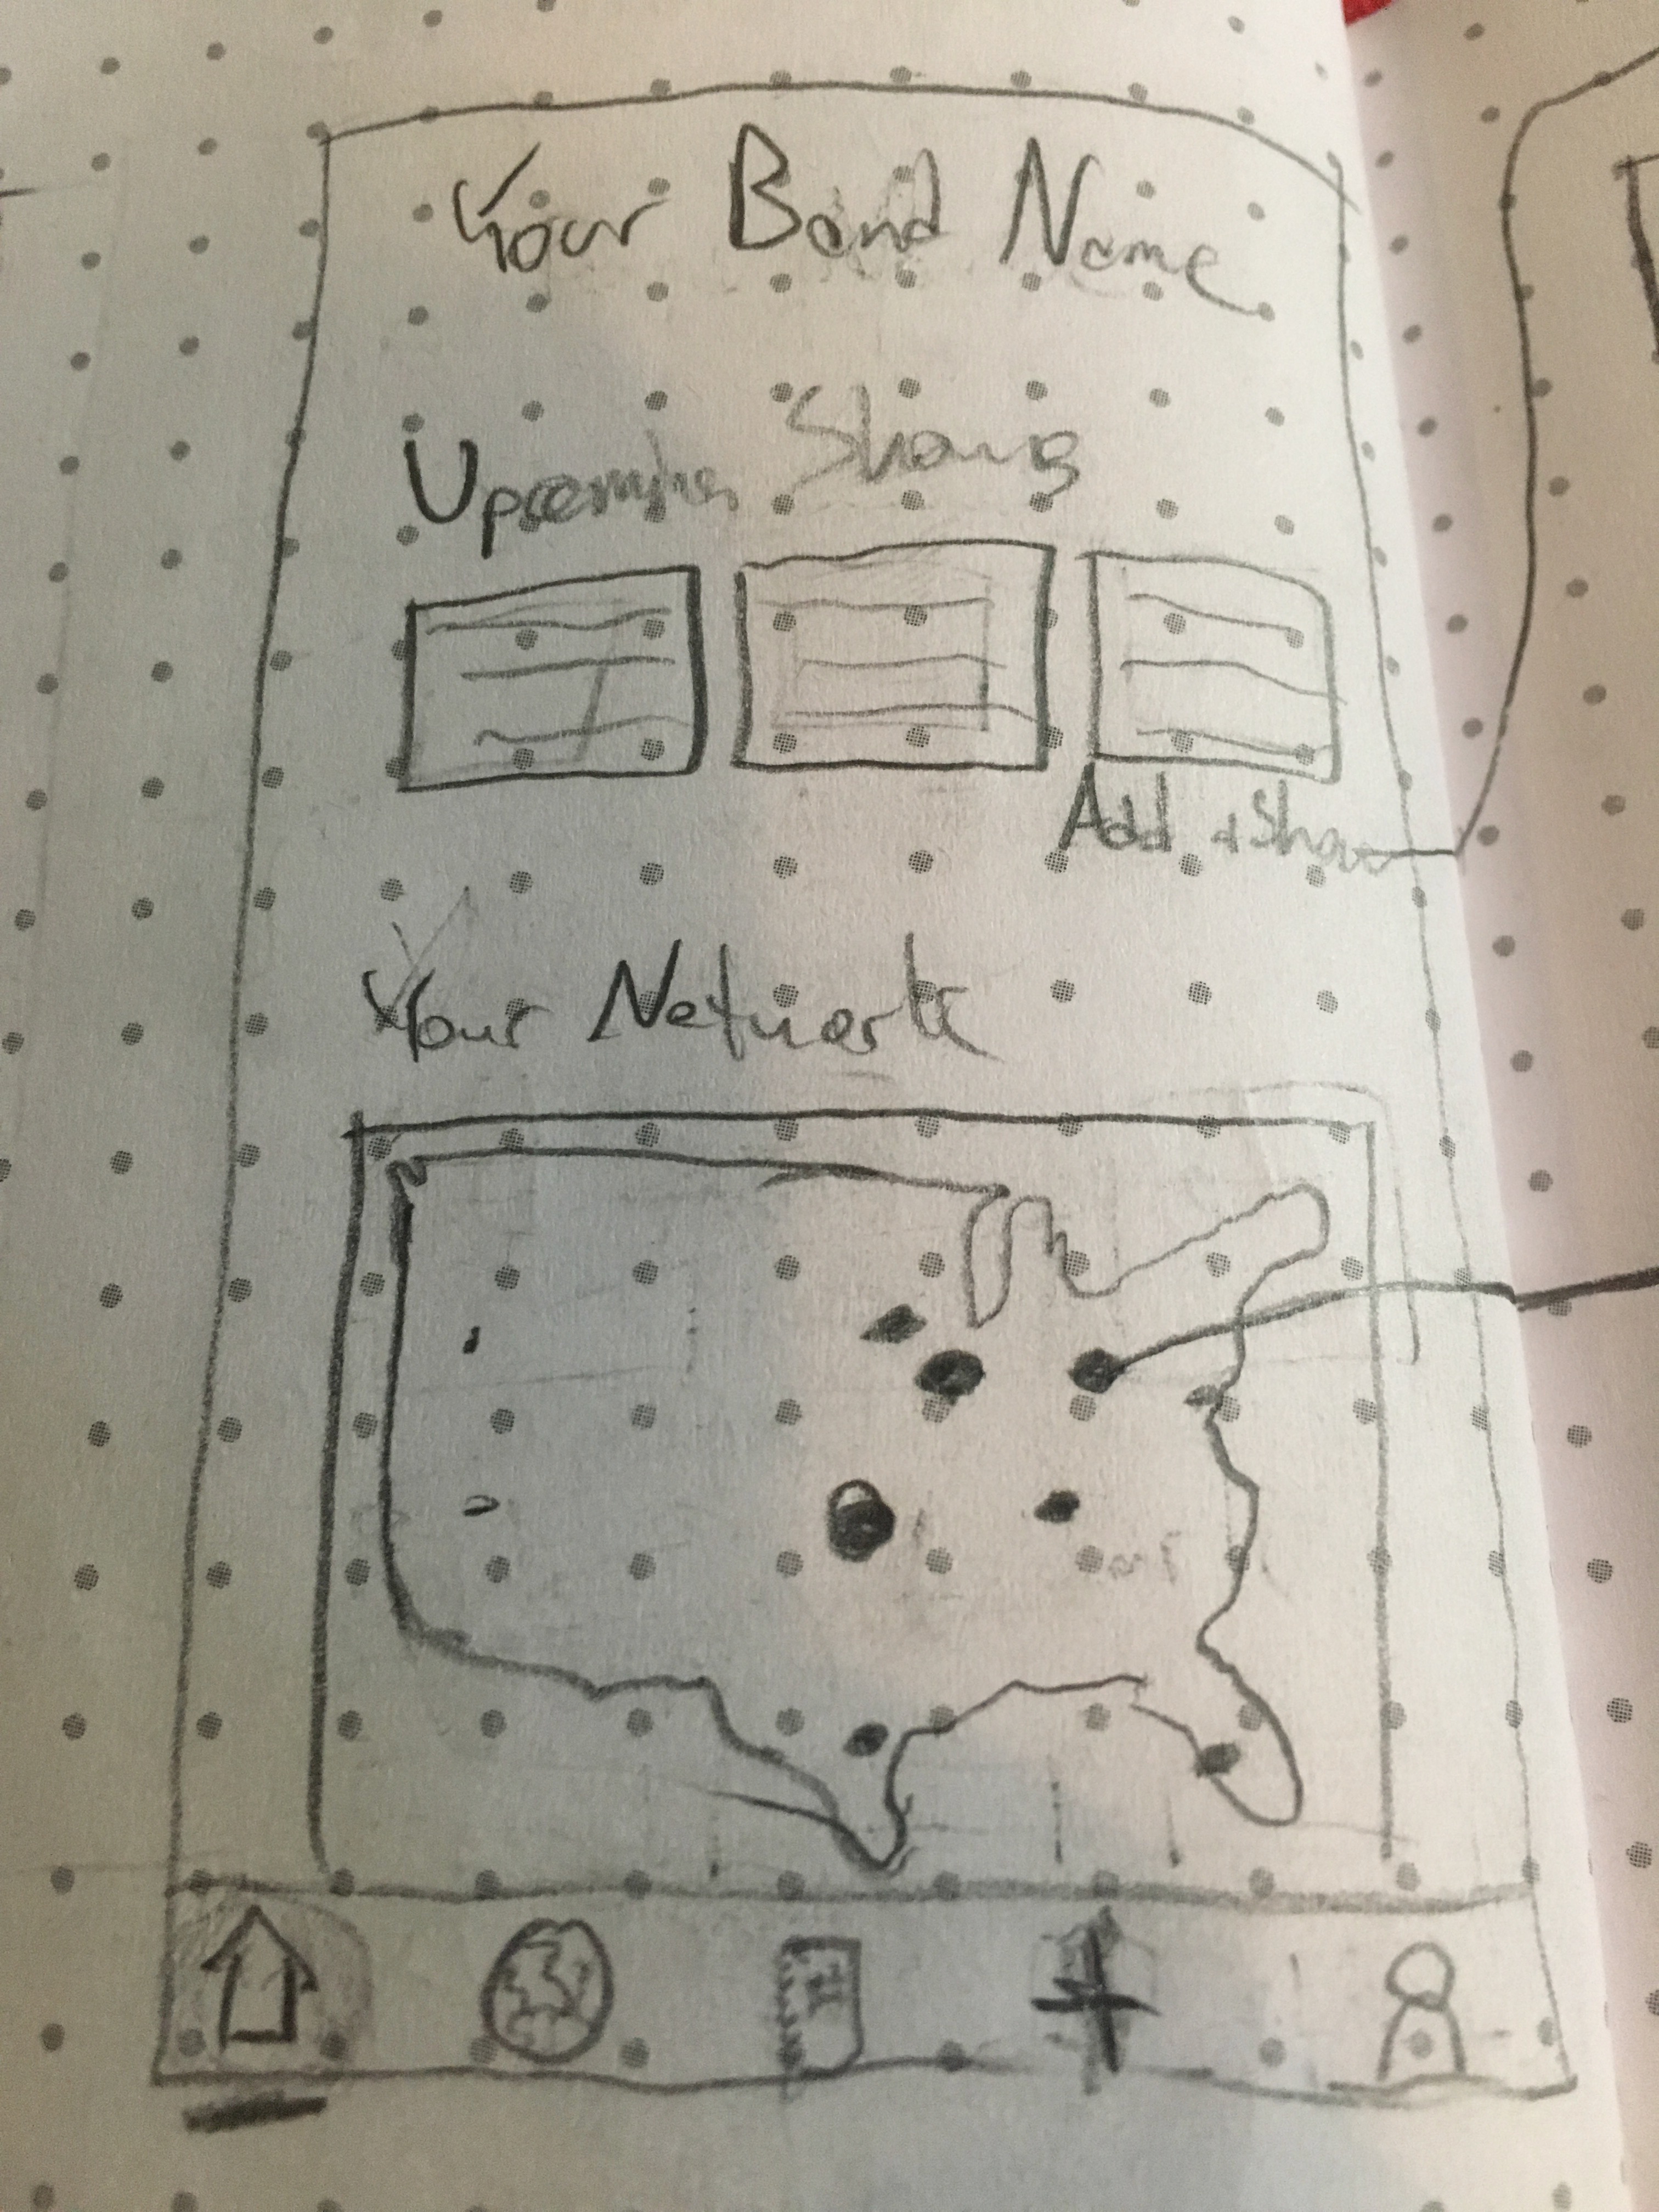 Your Band Name
Upcoming Shows
Add a Show
Your Network